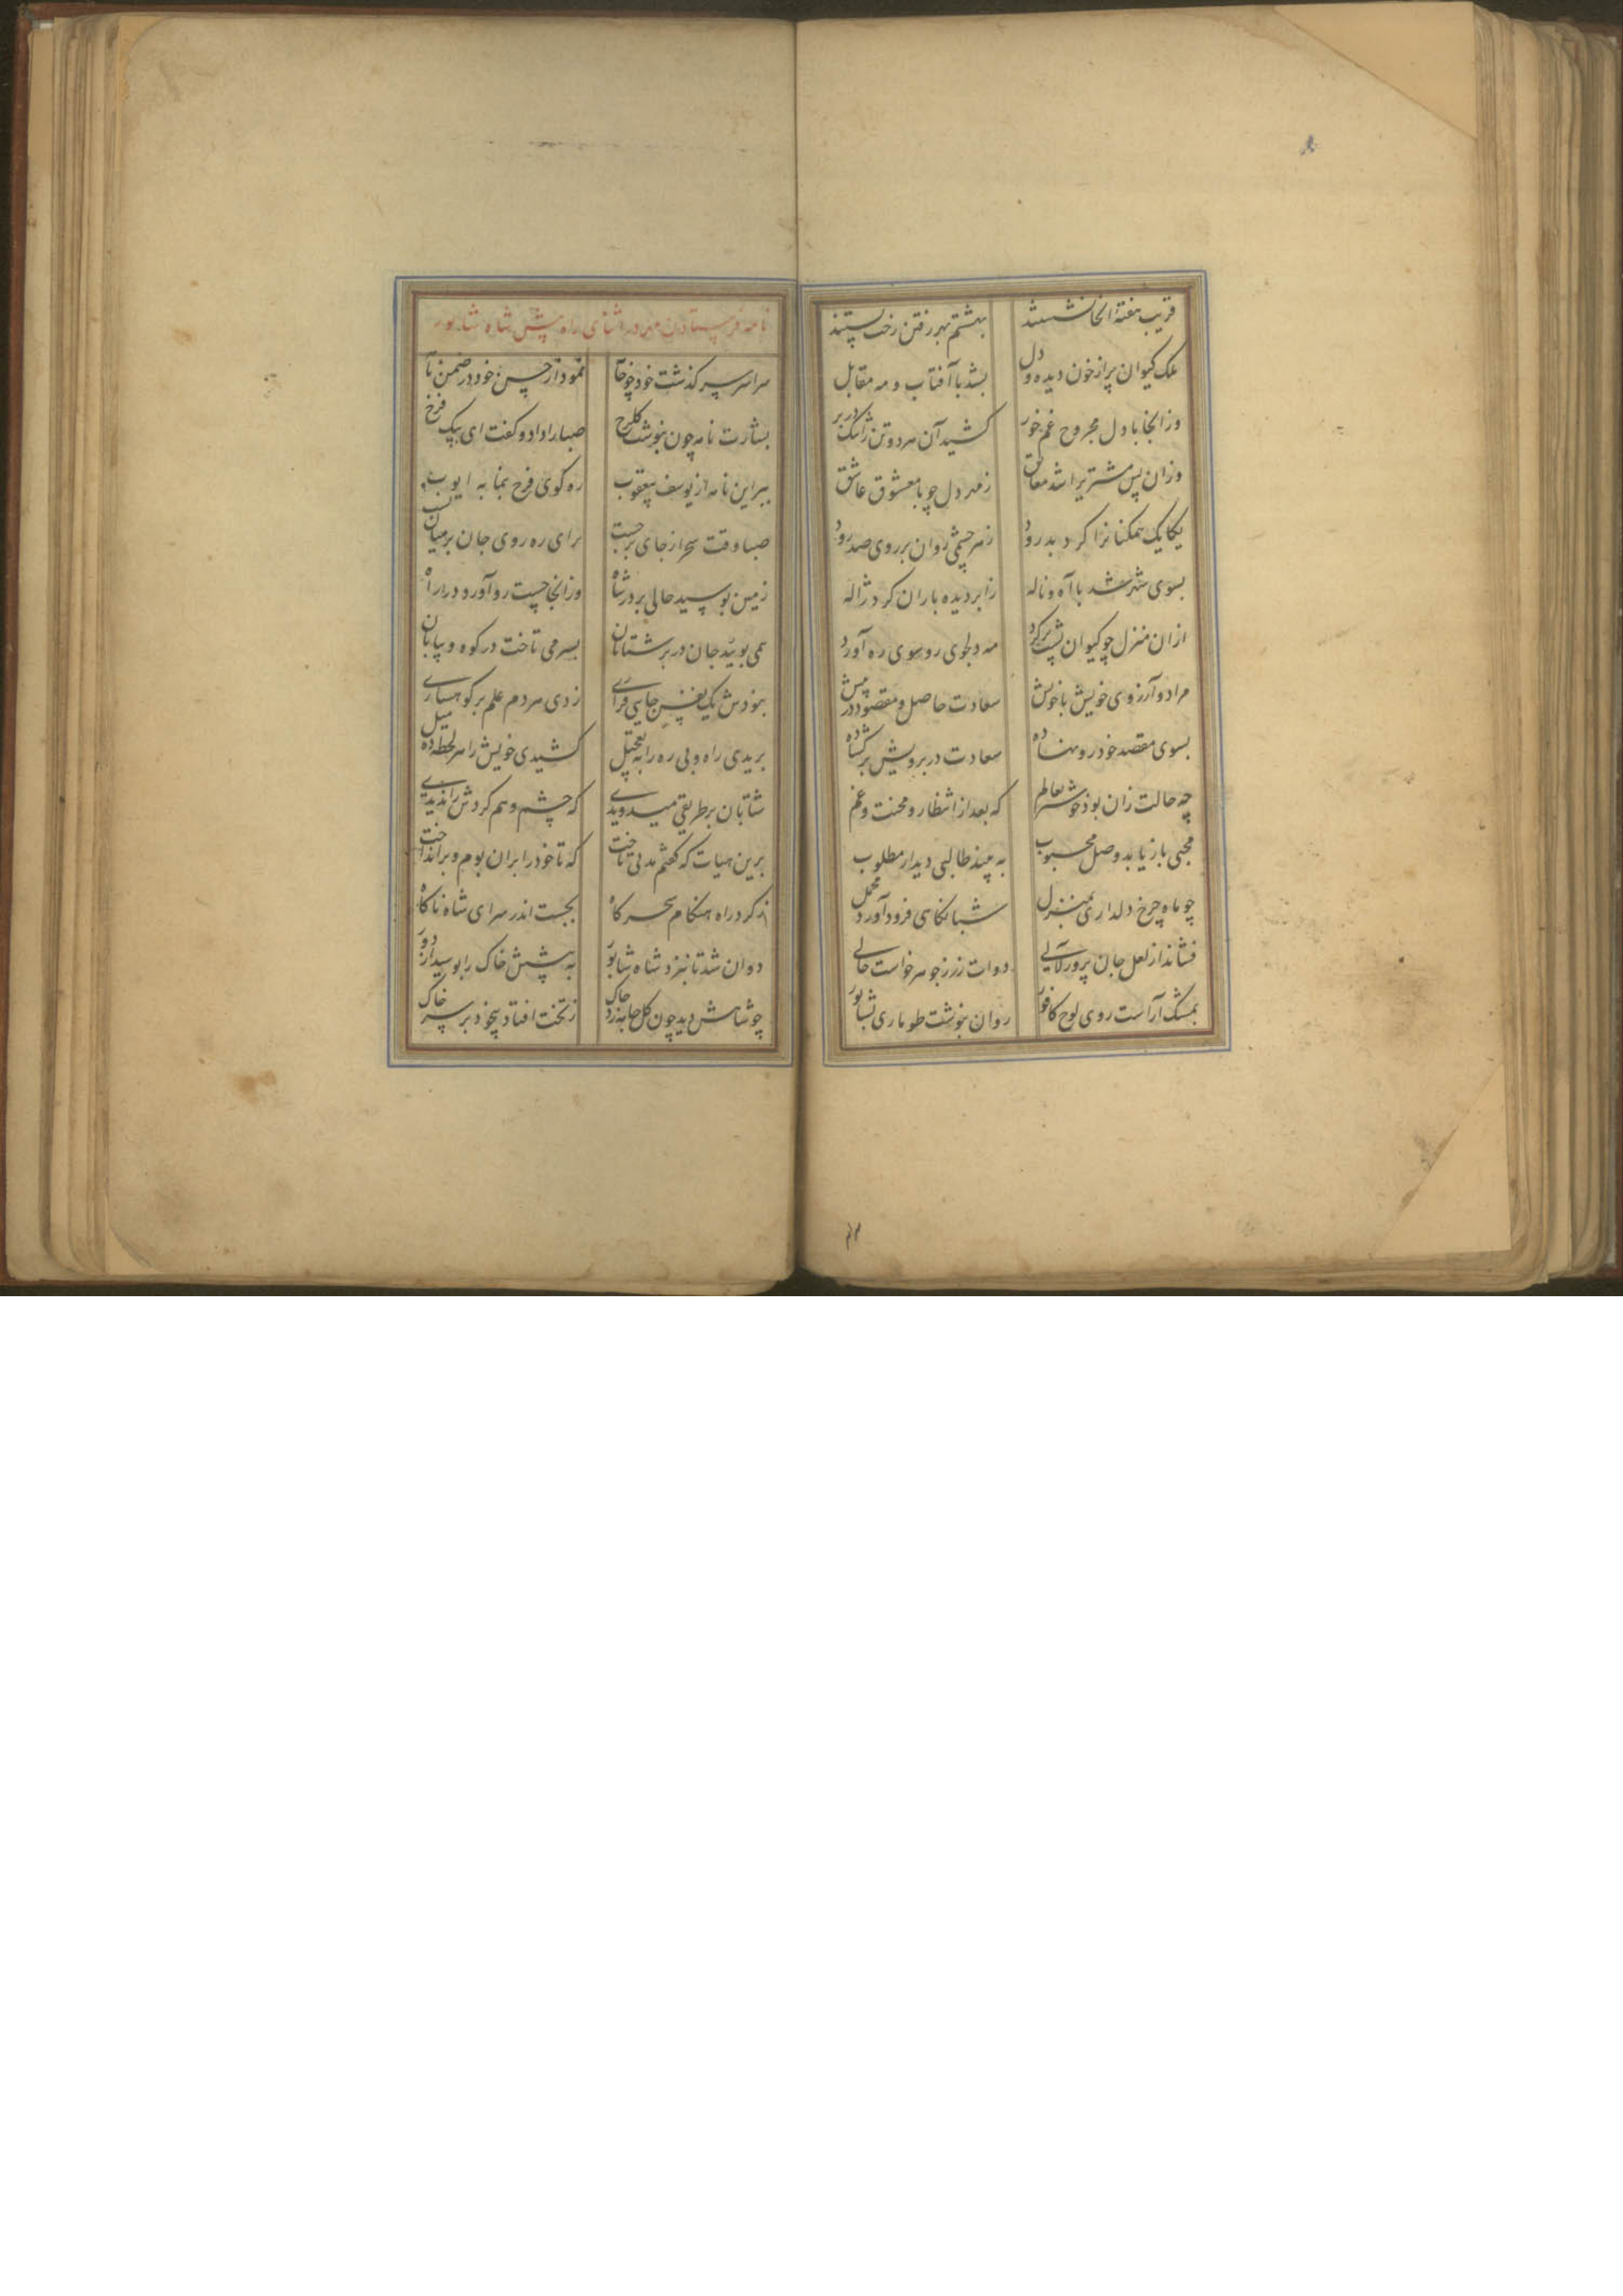 قریب هفته آنجا نشستند
بهشتم بهر رفتن رخت بستند
ملک کیوان پر از خون دیده و دل
بشد با آفتاب و مه مقابل
وز آنجا با دل مجروح غم خور
کشید آن هر دو تن را تنک در بر
وزان پس مشتریرا شد معانق
ز مهر دل چو با معشوق عاشق
یکایک همکنانرا کرد بدرود
ز هر چشمی روان بر روی صد رود
بسوی شهر شد با آه و ناله
ز ابر دیده باران کرد ژاله
از آن منزل چو کیوان پشت بر کرد
مه دلجوی رو سوی ره آورد
مراد و آرزوی خویش با خویش
سعادت حاصل و مقصود در پیش
بسوی مقصد خود رو نهاده
سعادت در برویش بر کشاده
چه حالت زان بود خوشتر بعالم
که بعد از انتظار و محنت و غم
محبی باز یابد وصل محبوب
به بیند طالبی دیدار مطلوب
چو ماه چرخ دلداری بمنزل
شبانکاهی فرود آورد محمل
فشاند از لعل جان پرور لآلی
دوات زر ز جوهر خواست حالی
بمشک آراست روی لوح کافور
روان بنوشت طوماری بشابور
نامه فرستادن مهر در اثنای راه پیش شاه شابور
سراسر سر کذشت خود چو خا
نمود از حسن خود در ضمن نا
بشارت نامه چون بنوشت کلرخ
صبا را داد و کفت ای پیک فرخ
ببر این نامه از یوسف بیعقوب
ره کوی فرح بنما به ایوب
صبا وقت سحر از جای برجست
برای ره روی جان بر میان بست
زمین بوسید حالی بر در شاه
وز آنجا چست رو آورد در راه
همی بویید جان در بر شتابان
بسر می تاخت در کوه و بیابان
نبودش یک نفس جایی قراری
زدی هر دم علم بر کوهساری
بریدی راه و بی ره را به تعجیل
کشیدی خویش را هر لحظه ده میل
شتابان بر طریقی میدویدی
که چشم وهم کردش را ندیدی
برین هیات که کفتم مدتی تاخت
که تا خود را بر ان بوم و بر انداخت
ز کرد راه هنکام سحر کاه
بجست اندر سرای شاه ناکاه
دوان شد تا بنزد شاه شابور
به پیشش خاک را بوسید از دور
چو شاهش دید چون کل جامه زد چاک
ز تخت افتاد بیخود بر سر خاک